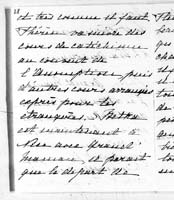 28
et très comme il faut.
Thérèse va suivre des
cours de catéchisme
au couvent de
l'Assomption, puis
d'autres cours arrangés
exprès pour les
étrangères.
est maintenant à
Nice avec grand'
maman, il paraît
que le départ de